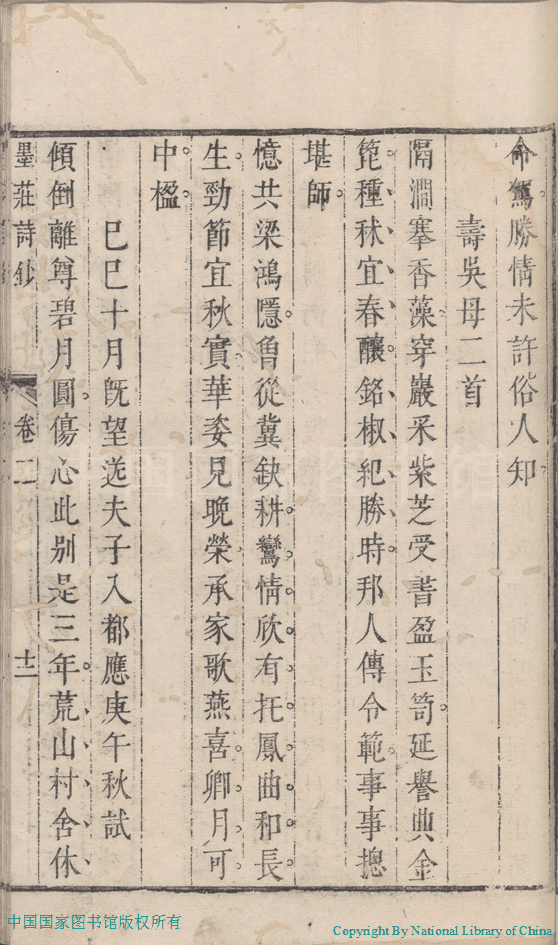 命駕勝情未許俗人知
壽吳母二首
隔澗搴香藻穿巖采紫芝受書盈玉笥延譽典金
箆種秫宜春釀銘椒紀勝時邦人傳令範事事揔
堪師
憶共梁鴻隱曾從冀缺耕鸞情欣有托鳳曲和長
生勁節宜秋實華姿見晚榮承家歌燕喜卿月可
中楹
巳巳十月旣望送夫子入都應庚午秋試
傾倒離尊碧月圓傷心此別是三年荒山村舍休
墨莊詩鈔
卷二
十二
中国国家图书馆版权所有
Copyright By National Library of China